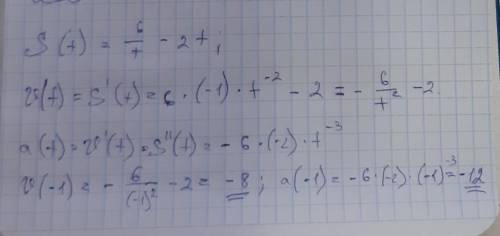 S(t) = 6/t - 2t;
v(t) = S'(t) = 6·(-1)·t⁻² - 2 = - 6/t² - 2.
a(t) = v'(t) = S''(t) = -6·(-2)·t⁻³
v(-1) = - 6/(-1)² - 2 = -8; a(-1) = -6·(-2)·(-1)⁻³ = -12